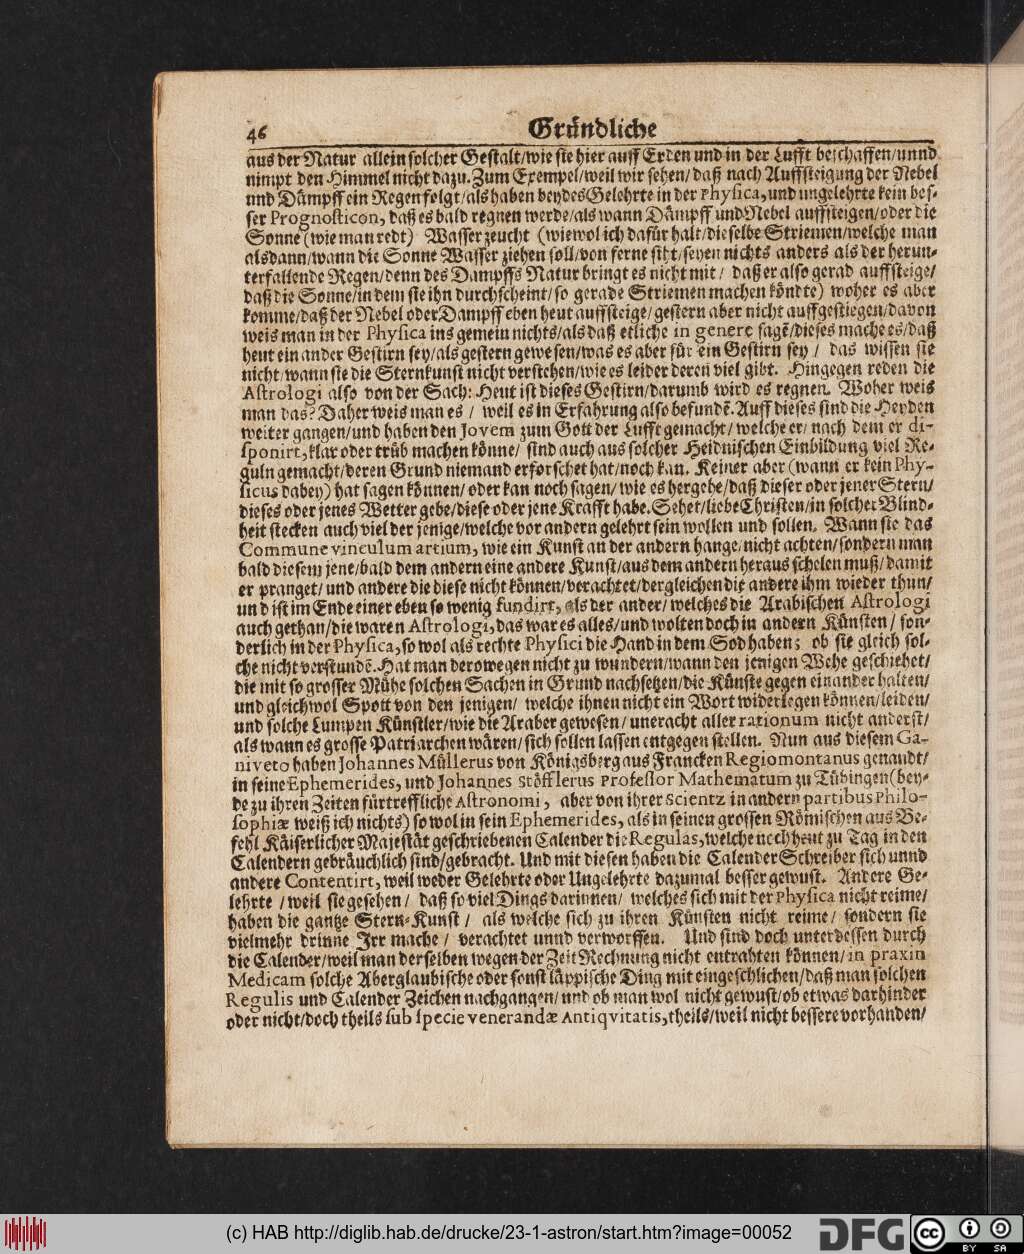 46 Gründliche
aus der Natur allein solcher Gestalt/wie sie hier auff Erden und in der Lufft beschaffen/unnd
nimpt den Himmel nicht dazu. Zum Exempel/weil wir sehen/daß nach Auffsteigung der Nebel
unnd Dämpff ein Regen folgt/als haben beydes Gelehrte in der Physica, und ungelehrte kein bes-
ser Prognosticon, daß es bald regnen werde/als wann Dämpff und Nebel auffsteigen/oder die
Sonne (wie man redt) Wasser zeucht (wiewol ich dafür halt/dieselbe Striemen/welche man
alsdann/wann die Sonne Wasser ziehen soll/von ferne siht/seyen nichts anders als der herun-
terfallende Regen/denn des Dampffs Natur bringt es nicht mit/ daß er also gerad auffsteige/
daß die Sonne/in dem sie ihn durchscheint/so gerade Striemen machen köndte) woher es aber
komme/daß der Nebel oder Dampff eben heut auffsteige/gestern aber nicht auffgestiegen/davon
weis man in der Physica ins gemein nichts/als daß etliche in genere sagẽ/dieses mache es/daß
heut ein ander Gestirn sey/als gestern gewesen/was es aber für ein Gestirn sey/ das wissen sie
nicht/wann sie die Sternkunst nicht verstehen/wie es leider deren viel gibt. Hingegen reden die
Astrologi also von der Sach: Heut ist dieses Gestirn/darumb wird es regnen. Woher weis
man das? Daher weis man es/ weil es in Erfahrung also befundẽ. Auff dieses sind die Heyden
weiter gangen/und haben den Jovem zum Gott der Lufft gemacht/welche er/nach dem er di-
sponirt, klar oder trüb machen könne/ sind auch aus solcher Heidnischen Einbildung viel Re-
guln gemacht/deren Grund niemand erforschet hat/noch kan. Keiner aber (wann er kein Phy-
sicus dabey) hat sagen können/ oder kan noch sagen/ wie es hergehe/daß dieser oder jener Stern/
dieses oder jenes Wetter gebe/diese oder jene Krafft habe. Sehet/liebe Christen/in solcher Blind-
heit stecken auch viel der jenige/welche vor andern gelehrt sein wollen und sollen. Wann sie das
Commune vinculum artium, wie ein Kunst an der andern hange/nicht achten/sondern man
bald diesem jene/bald dem andern eine andere Kunst/aus dem andern heraus schelen muß/damit
er pranget/und andere die diese nicht können/verachtet/dergleichen die andere ihm wieder thun/
und ist im Ende einer eben so wenig fundirt, als der ander/welches die Arabischen Astrologi
auch gethan/die waren Astrologi, das war es alles/und wolten doch in andern Künsten/ son-
derlich in der Physica, so wol als rechte Physici die Hand in dem Sod haben; ob sie gleich sol-
che nicht verstundẽ. Hat man derowegen nicht zu wundern/wann den jenigen Wehe geschiehet/
die mit so grosser Mühe solchen Sachen in Grund nachsetzen/die Künste gegen einander halten/
und gleichwol Spott von den jenigen/ welche ihnen nicht ein Wort widerlegen können/leiden/
und solche Lumpen Künstler/wie die Araber gewesen/uneracht aller rationum nicht anderst/
als wann es grosse Patriarchen wären/sich sollen lassen entgegen stellen. Nun aus diesem Ga-
niveto haben Johannes Müllerus von Königsberg aus Francken Regiomontanus genandt/
in seine Ephemerides, und Johannes Stöfflerus Professor Mathematum zu Tübingen (bey-
de zu ihren Zeiten fürtreffliche Astronomi, aber von ihrer Scientz in andern partibus Philo-
sophiæ weiß ich nichts) so wol in sein Ephemerides, als in seinen grossen Römischen aus Be-
fehl Käiserlicher Majestät geschriebenen Calender die Regulas, welche noch heut zu Tag in den
Calendern gebräuchlich sind/gebracht. Und mit diesen haben die Calender Schreiber sich unnd
andere Contentirt, weil weder Gelehrte oder Ungelehrte dazumal besser gewust. Andere Ge-
lehrte/weil sie gesehen/ daß so viel Dings darinnen/ welches sich mit der Physica nicht reime/
haben die gantze Stern-Kunst/ als welche sich zu ihren Künsten nicht reime/ sondern sie
vielmehr drinne Irr mache/ verachtet unnd verworffen. Und sind doch unterdessen durch
die Calender/weil man derselben wegen der Zeit Rechnung nicht entrahten können/in praxin
Medicam solche Aberglaubische oder sonst läppische Ding mit eingeschlichen/daß man solchen
Regulis und Calender Zeichen nachgangen/und ob man wol nicht gewust/ob etwas darhinder
oder nicht/doch theils sub specie venerandæ Antiqvitatis, theils/weil nicht bessere vorhanden/
(c) HAB http://diglib.hab.de/drucke/23-1-astron/start.htm?image=00052
DFG
cc
BY SA